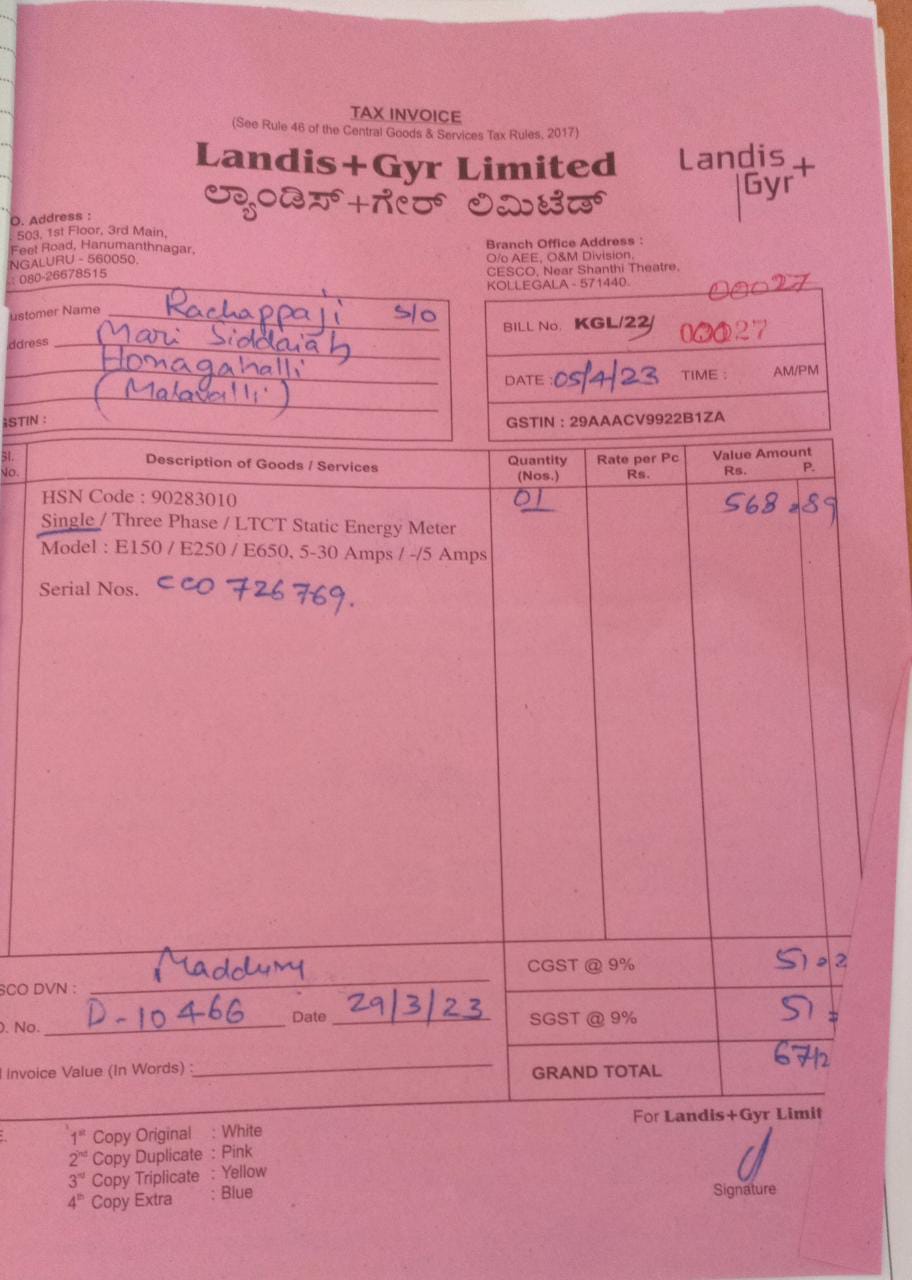 TAX INVOICE
(See Rule 46 of the Central Goods & Services Tax Rules, 2017)
Landis+Gyr Limited
ಲ್ಯಾಂಡಿಸ್+ಗೇರ್ ಲಿಮಿಟೆಡ್
Landis+
Gyr
O. Address :
503, 1st Floor, 3rd Main,
Feet Road, Hanumanthnagar,
NGALURU - 560050.
: 080-26678515
Branch Office Address :
O/o AEE, O&M Division,
CESCO, Near Shanthi Theatre,
KOLLEGALA - 571440.
00027
ustomer Name Rachappaji S/O
ddress Mari Siddaiah
Honagahalli
(Malavalli)
GSTIN :
BILL No. KGL/22/ 00027
DATE : 05/4/23 TIME : AM/PM
GSTIN : 29AAACV9922B1ZA
Sl. No. Description of Goods / Services Quantity (Nos.) Rate per Pc Rs. Value Amount Rs. P.
HSN Code : 90283010 01 568.89
Single / Three Phase / LTCT Static Energy Meter
Model : E150 / E250 / E650, 5-30 Amps / -/5 Amps
Serial Nos. CCO 726769.
SCO DVN : Maddury
O. No. D-10466 Date 29/3/23
Invoice Value (In Words) :
CGST @ 9% 51.2
SGST @ 9% 51
GRAND TOTAL 671
For Landis+Gyr Limit
1st Copy Original : White
2nd Copy Duplicate : Pink
3rd Copy Triplicate : Yellow
4th Copy Extra : Blue
Signature